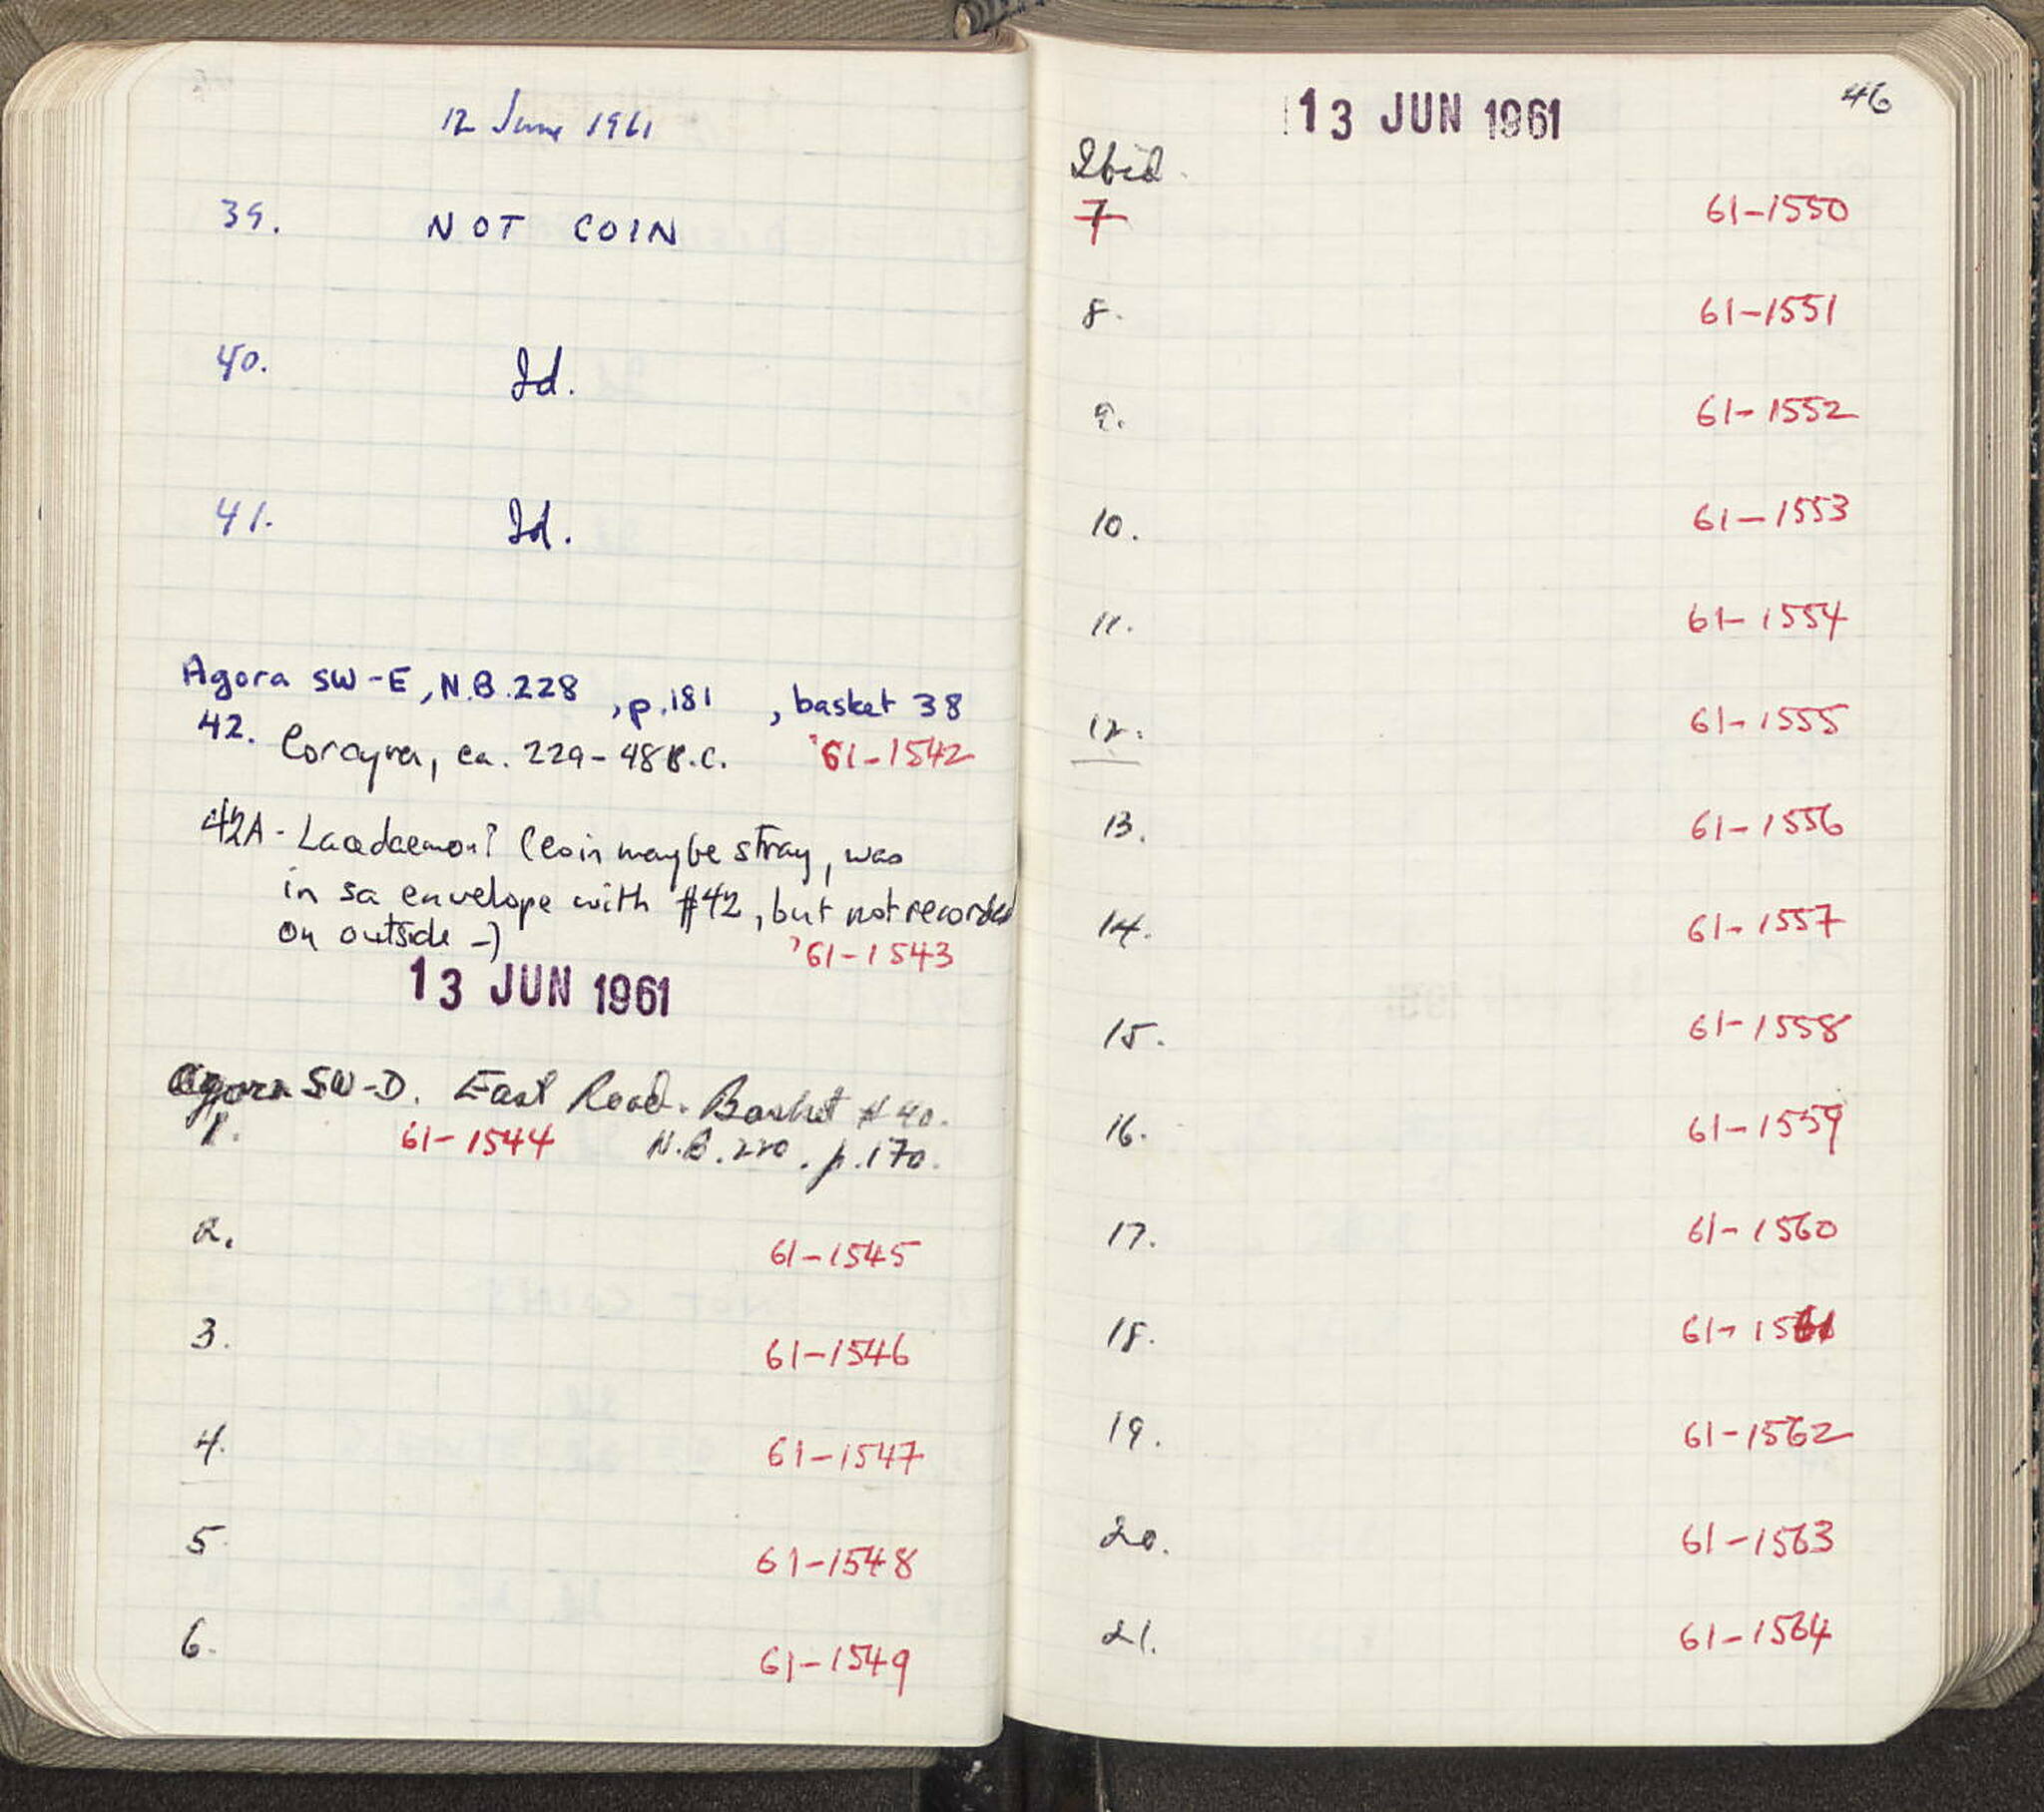 12 June 1961
39. NOT COIN
40. Id.
41. Id.
Agora SW-E, N.B. 228, p. 181, basket 38
42. Corcyra, ca. 229-48 B.C. '61-1542
42A - Lacedaemon? (coin maybe stray, was
in sa envelope with #42, but not recorded
on outside -)
'61-1543
13 JUN 1961
Agora SW-D. East Road. Basket #40.
1. 61-1544 N.B. 220. p. 170.
2. 61-1545
3. 61-1546
4. 61-1547
5. 61-1548
6. 61-1549
13 JUN 1961 46
Ibid.
7 61-1550
8. 61-1551
9. 61-1552
10. 61-1553
11. 61-1554
12. 61-1555
13. 61-1556
14. 61-1557
15. 61-1558
16. 61-1559
17. 61-1560
18. 61-1561
19. 61-1562
20. 61-1563
21. 61-1564